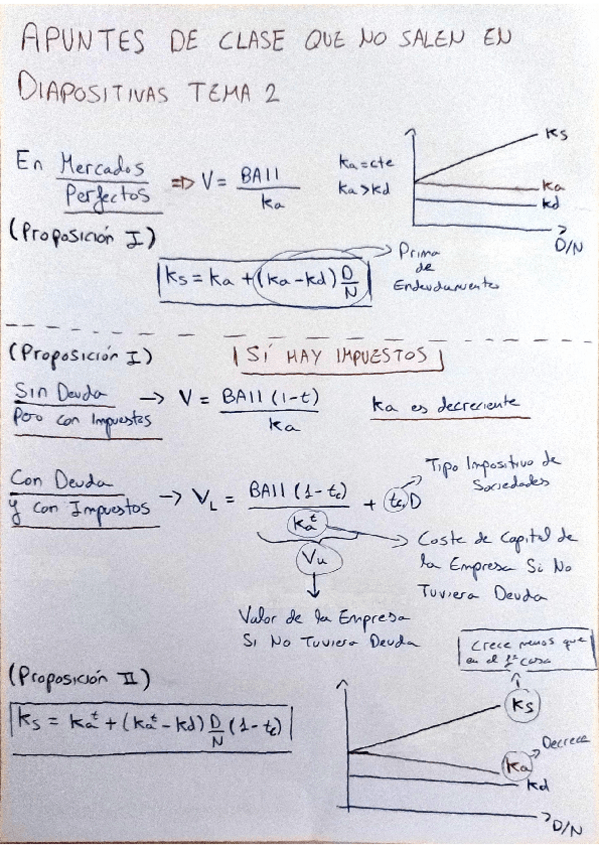 APUNTES DE CLASE QUE NO SALEN EN
DIAPOSITIVAS TEMA 2
En Mercados Perfectos => V = BAII / ka
ka = cte
ka > kd
ks
ka
kd
D/N
(Proposición I)
ks = ka + (ka - kd) D/N
Prima
de
Endeudamiento
(Proposición I)
SÍ HAY IMPUESTOS
Sin Deuda
Pero con Impuestos
→ V = BAII (1-t) / ka
ka es decreciente
Con Deuda
y con Impuestos
→ VL = BAII (1-tc) / ka^t + tc D
Tipo Impositivo de
Sociedades
Vu
Coste de Capital de
la Empresa Si No
Tuviera Deuda
Valor de la Empresa
Si No Tuviera Deuda
Crece menos que
en el 1er caso
(Proposición II)
ks = ka^t + (ka^t - kd) D/N (1-tc)
ks
Decrece
ka
kd
D/N